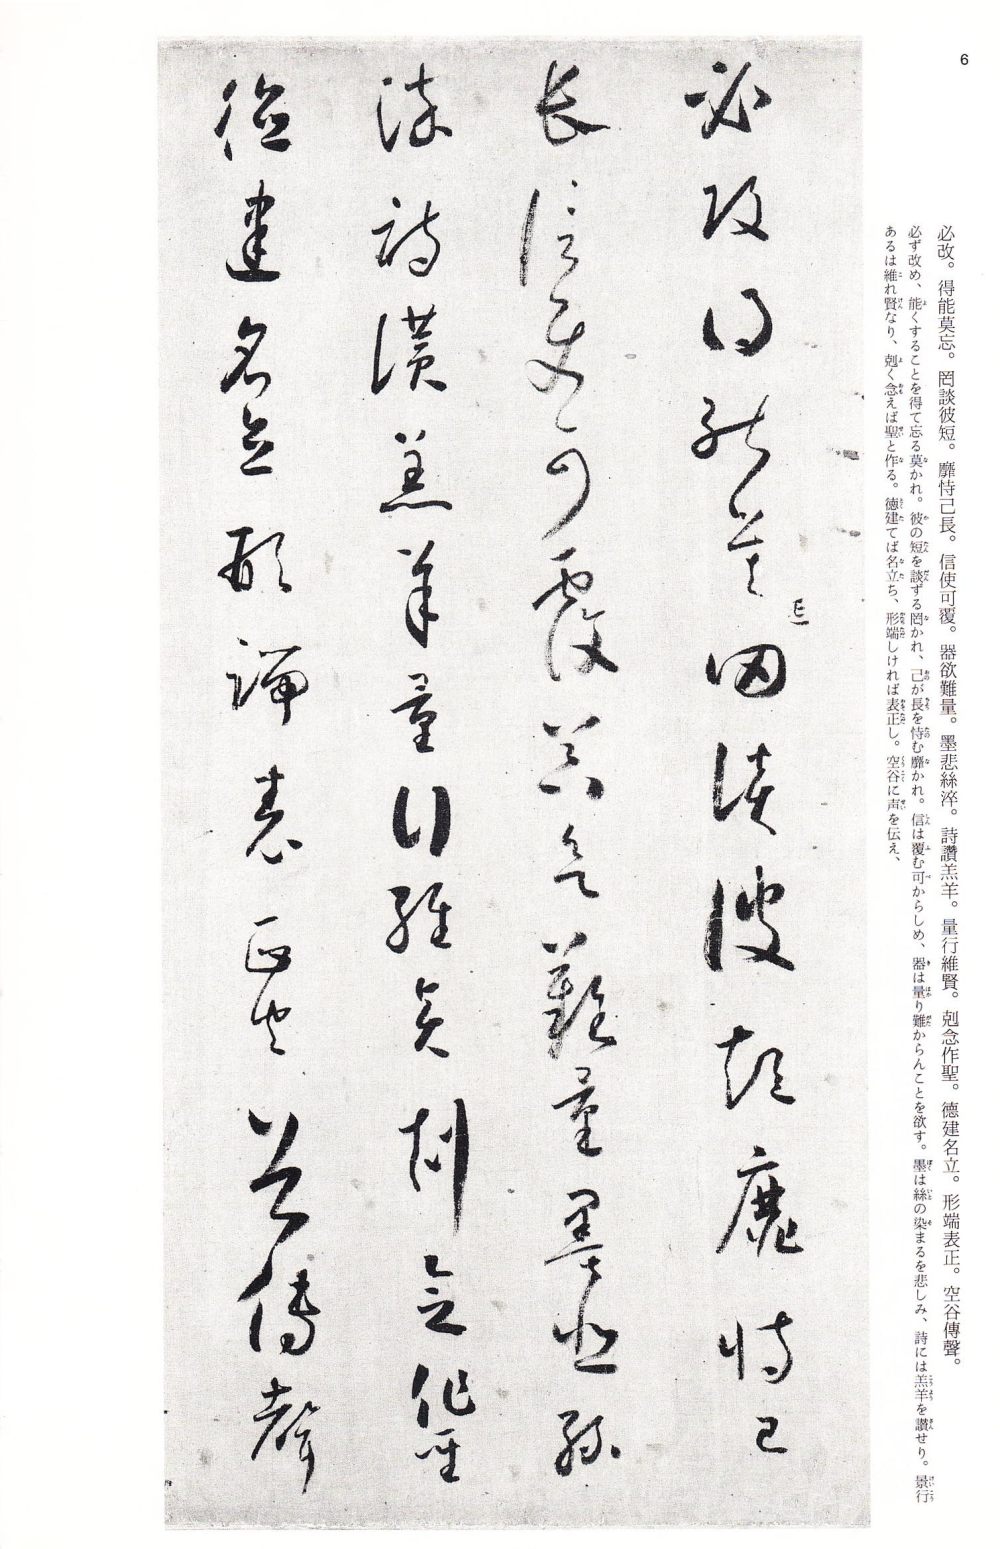 6
必改。得能莫忘。罔談彼短。靡恃己長。信使可覆。器欲難量。墨悲絲淬。詩讚羔羊。量行維賢。剋念作聖。德建名立。形端表正。空谷傳聲。
必ず改め、能くすることを得て忘る莫かれ。彼の短を談ずる罔かれ、己が長を恃む靡かれ。信は覆む可からしめ、器は量り難からんことを欲す。墨は絲の染まるを悲しみ、詩には羔羊を讚せり。景行
あるは維れ賢なり、剋く念えば聖と作る。德建てば名立ち、形端しければ表正し。空谷に声を伝え、
必改得能莫忘罔談彼短靡恃己
長信使可覆器欲難量墨悲絲
淬詩讚羔羊量行維賢剋念作聖
德建名立形端表正空谷傳聲